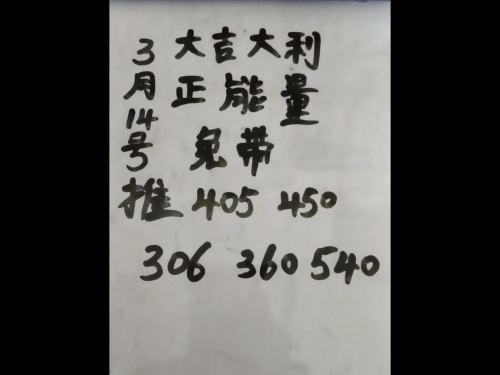 3月14号
大吉大利
正能量
免带
推 405 450
306 360 540